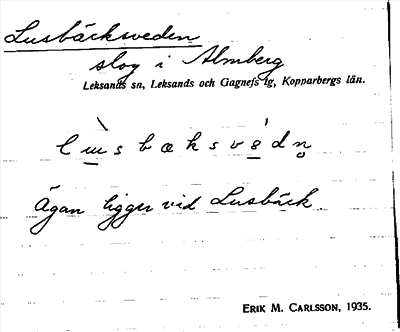 Lusbäcksveden
slog i Almberg
Leksands sn, Leksands och Gagnefs tg, Kopparbergs län.
Ägan ligger vid Lusbäck.
ERIK M. CARLSSON, 1935.